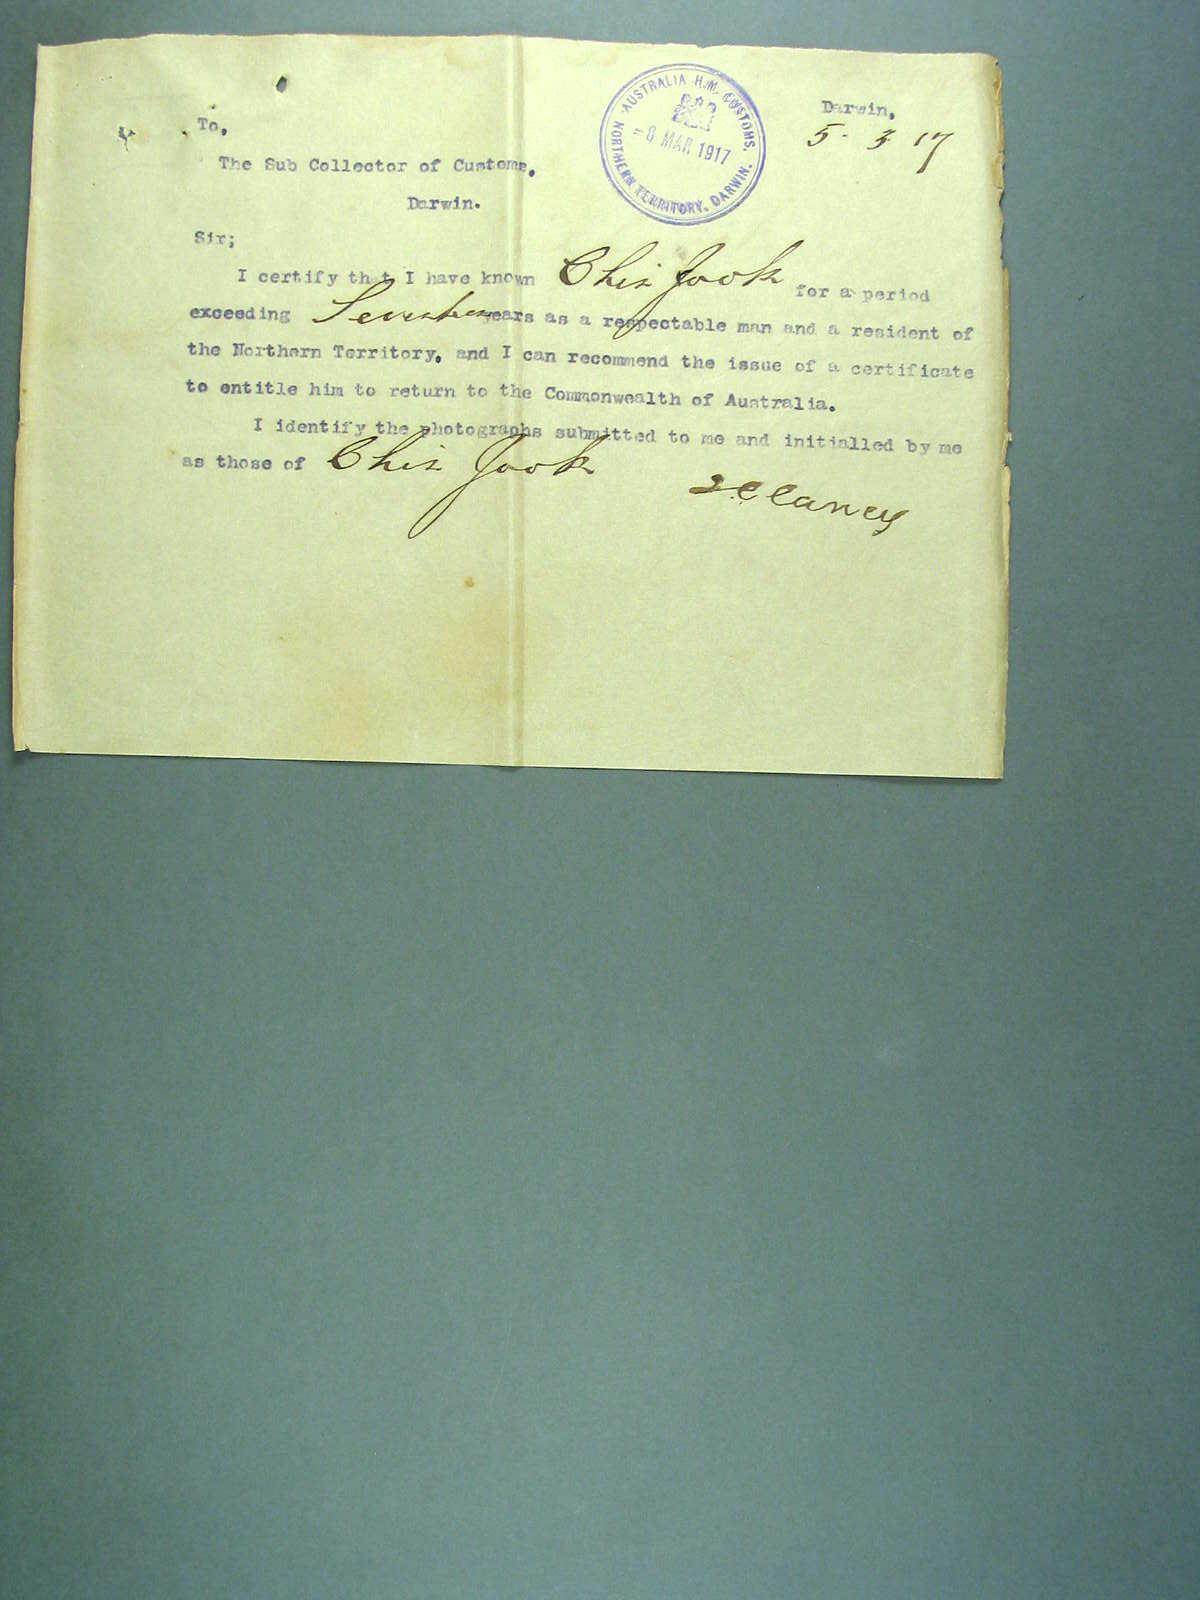 Darwin,
5- 3 17
AUSTRALIA H.M. CUSTOMS.
8 MAR 1917
NORTHERN TERRITORY, DARWIN.
To,
The Sub Collector of Customs,
Darwin.
Sir;
I certify that I have known Chin Jook for a period
exceeding Seventeen years as a respectable man and a resident of
the Northern Territory, and I can recommend the issue of a certificate
to entitle him to return to the Commonwealth of Australia.
I identify the photographs submitted to me and initialled by me
as those of Chin Jook